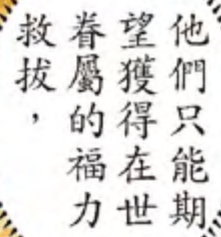 他們只能期
望獲得在世
眷屬的福力
救拔，